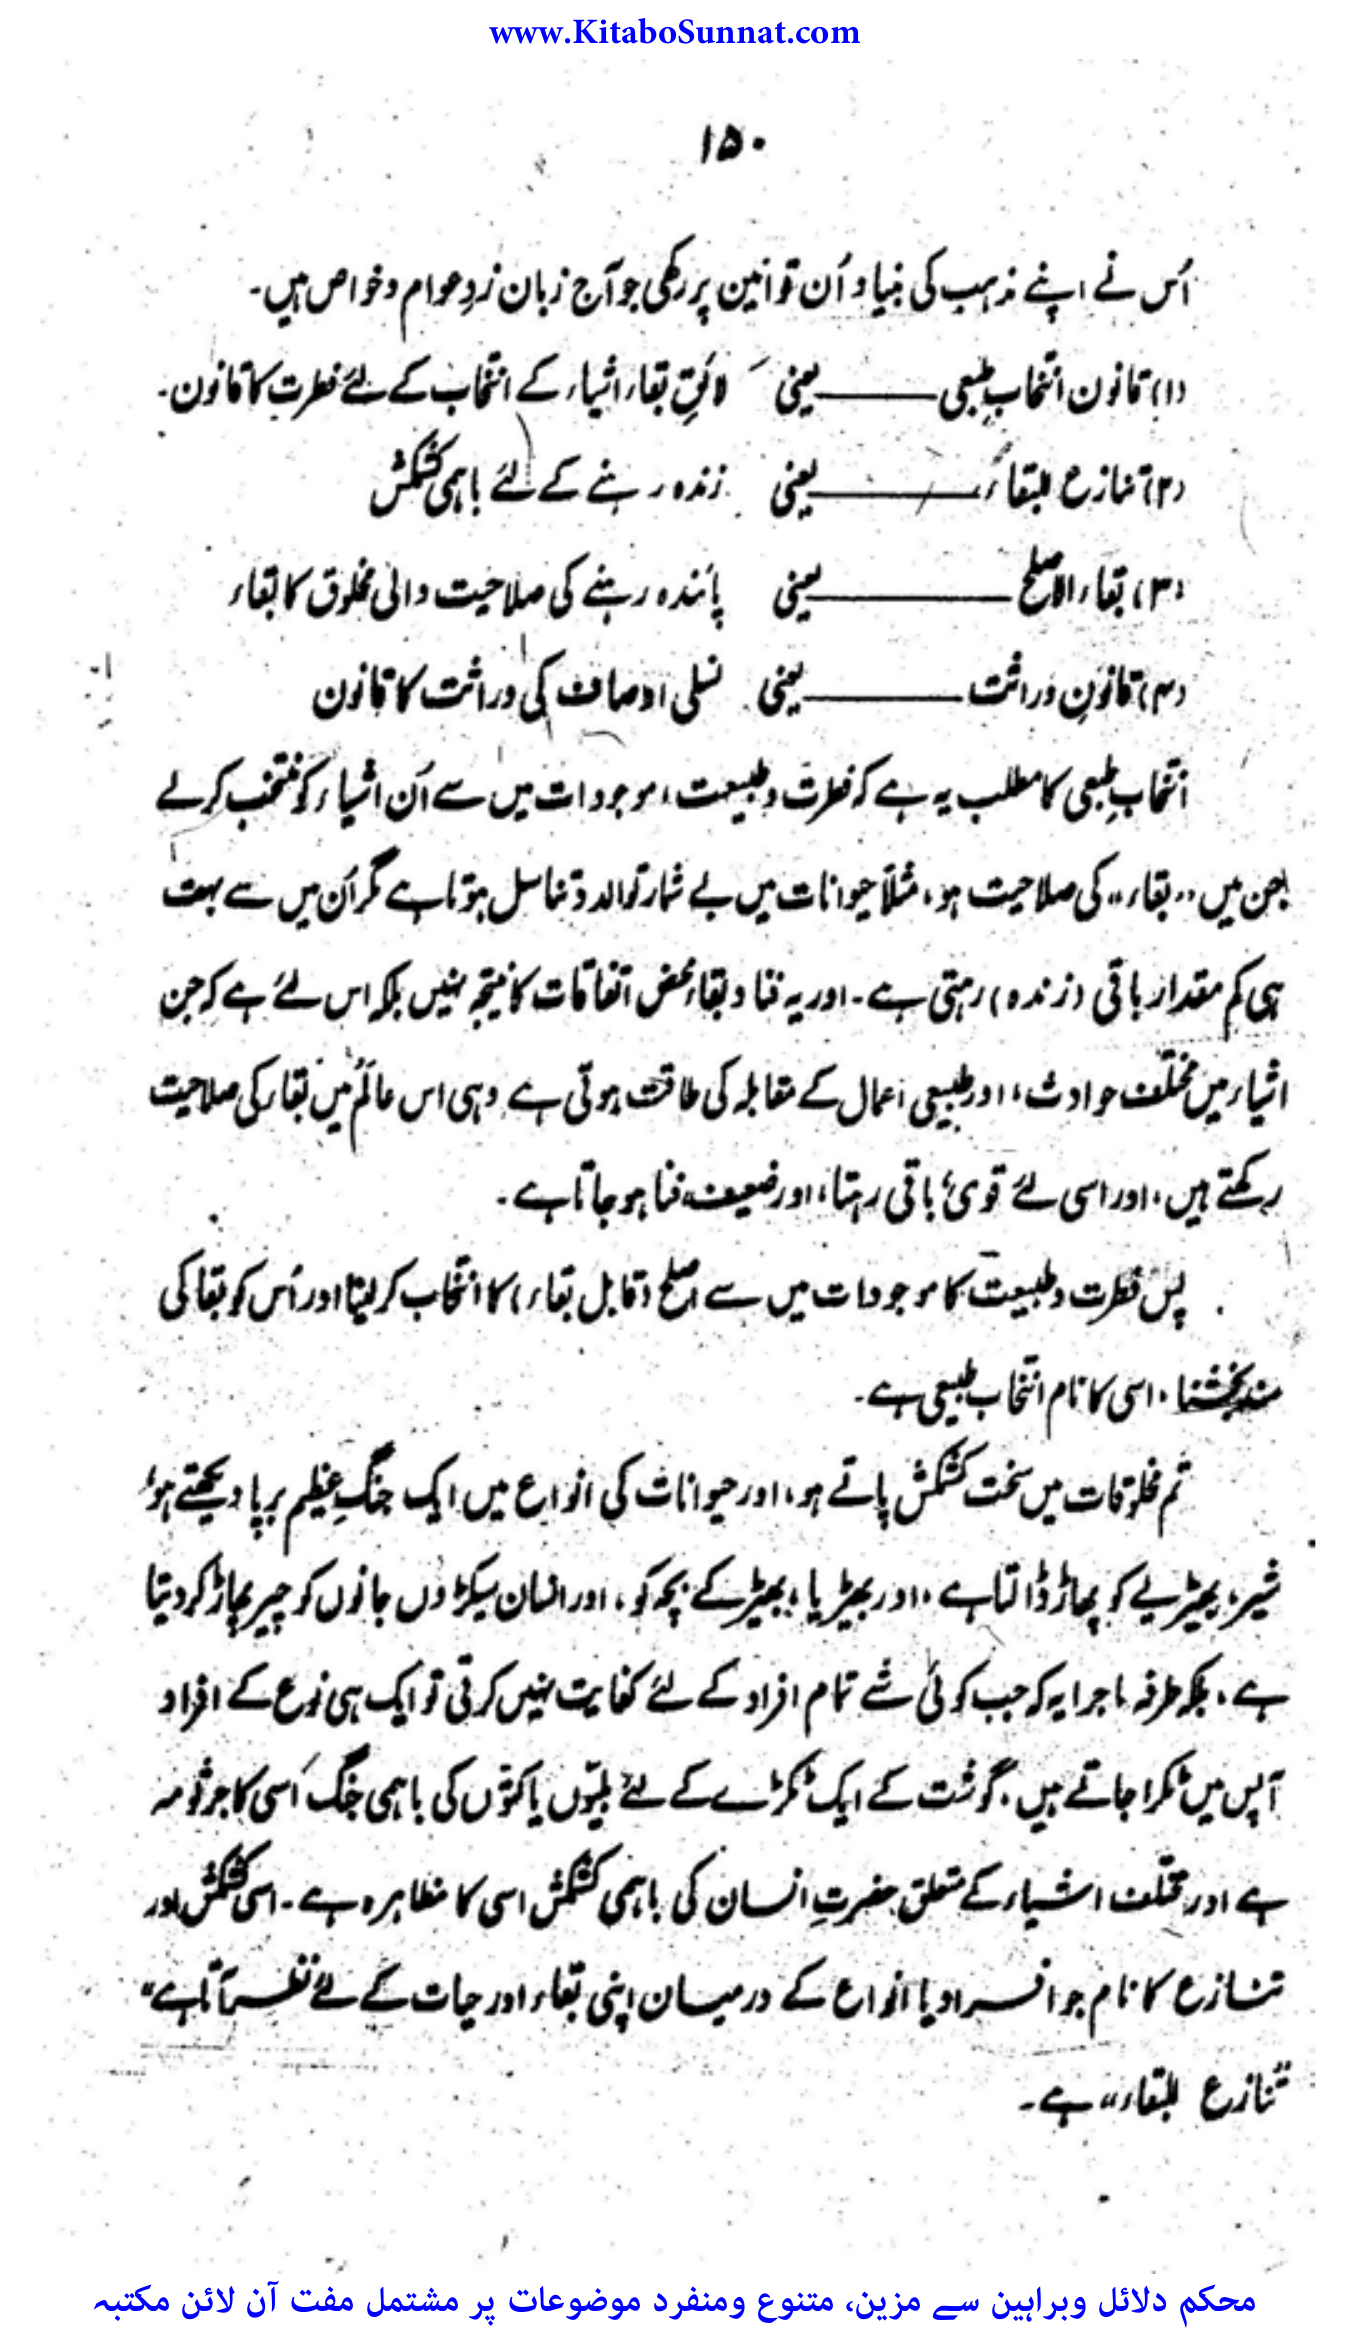 www.KitaboSunnat.com
۱۵۰
اُس نے اپنے مذہب کی بنیاد اُن قوانین پر رکھی جو آج زبان زدِ عوام و خواص ہیں۔
(۱) قانون انتخابِ طبعی ــــــ یعنی لائقِ بقاء اشیاء کے انتخاب کے لئے فطرت کا قانون۔
(۲) تنازع للبقاء ــــــ یعنی زندہ رہنے کے لئے باہمی کشمکش
(۳) بقاء الاصلح ــــــ یعنی پائندہ رہنے کی صلاحیت والی مخلوق کا بقاء
(۴) قانونِ وراثت ــــــ یعنی نسلی اوصاف کی وراثت کا قانون
انتخابِ طبعی کا مطلب یہ ہے کہ فطرت و طبیعت، موجودات میں سے اُن اشیاء کو منتخب کر لے
جن میں "بقاء" کی صلاحیت ہو، مثلاً حیوانات میں بے شمار توالد و تناسل ہوتا ہے مگر اُن میں سے بہت
ہی کم مقدار باقی (زندہ) رہتی ہے۔ اور یہ فنا و بقاء محض اتفاقات کا نتیجہ نہیں بلکہ اس لئے ہے کہ جن
اشیاء میں مختلف حوادث، اور طبیعی اعمال کے مقابلہ کی طاقت ہوتی ہے وہی اس عالَم میں بقاء کی صلاحیت
رکھتے ہیں، اور اسی لئے قوی باقی رہتا، اور ضعیف فنا ہو جاتا ہے۔
پس فطرت و طبیعت کا موجودات میں سے اصلح (قابل بقاء) کا انتخاب کر لینا اور اُس کو بقا کی
سند بخشنا، اسی کا نام انتخاب طبیعی ہے۔
تم مخلوقات میں سخت کشمکش پاتے ہو، اور حیوانات کی انواع میں ایک جنگِ عظیم برپا دیکھتے ہو،
شیر، بھیڑیے کو پھاڑ ڈالتا ہے، اور بھیڑیا، بھیڑ کے بچہ کو، اور انسان سیکڑوں جانوں کو چیر پھاڑ کر دیتا
ہے، بلکہ طرفہ ماجرا یہ کہ جب کوئی شے تمام افراد کے لئے کفایت نہیں کرتی تو ایک ہی نوع کے افراد
آپس میں ٹکرا جاتے ہیں، گوشت کے ایک ٹکڑے کے لئے بلیّوں یا کتوّں کی باہمی جنگ اُسی کا جرثومہ
ہے اور مختلف اشیاء کے متعلق حضرتِ انسان کی باہمی کشمکش اسی کا مظاہرہ ہے۔ اسی کشمکش اور
تنازع کا نام جو افراد یا انواع کے درمیان اپنی بقاء اور حیات کے لئے نظر آتا ہے"
"تنازع للبقاء" ہے۔
محکم دلائل وبراہین سے مزین، متنوع ومنفرد موضوعات پر مشتمل مفت آن لائن مکتبہ